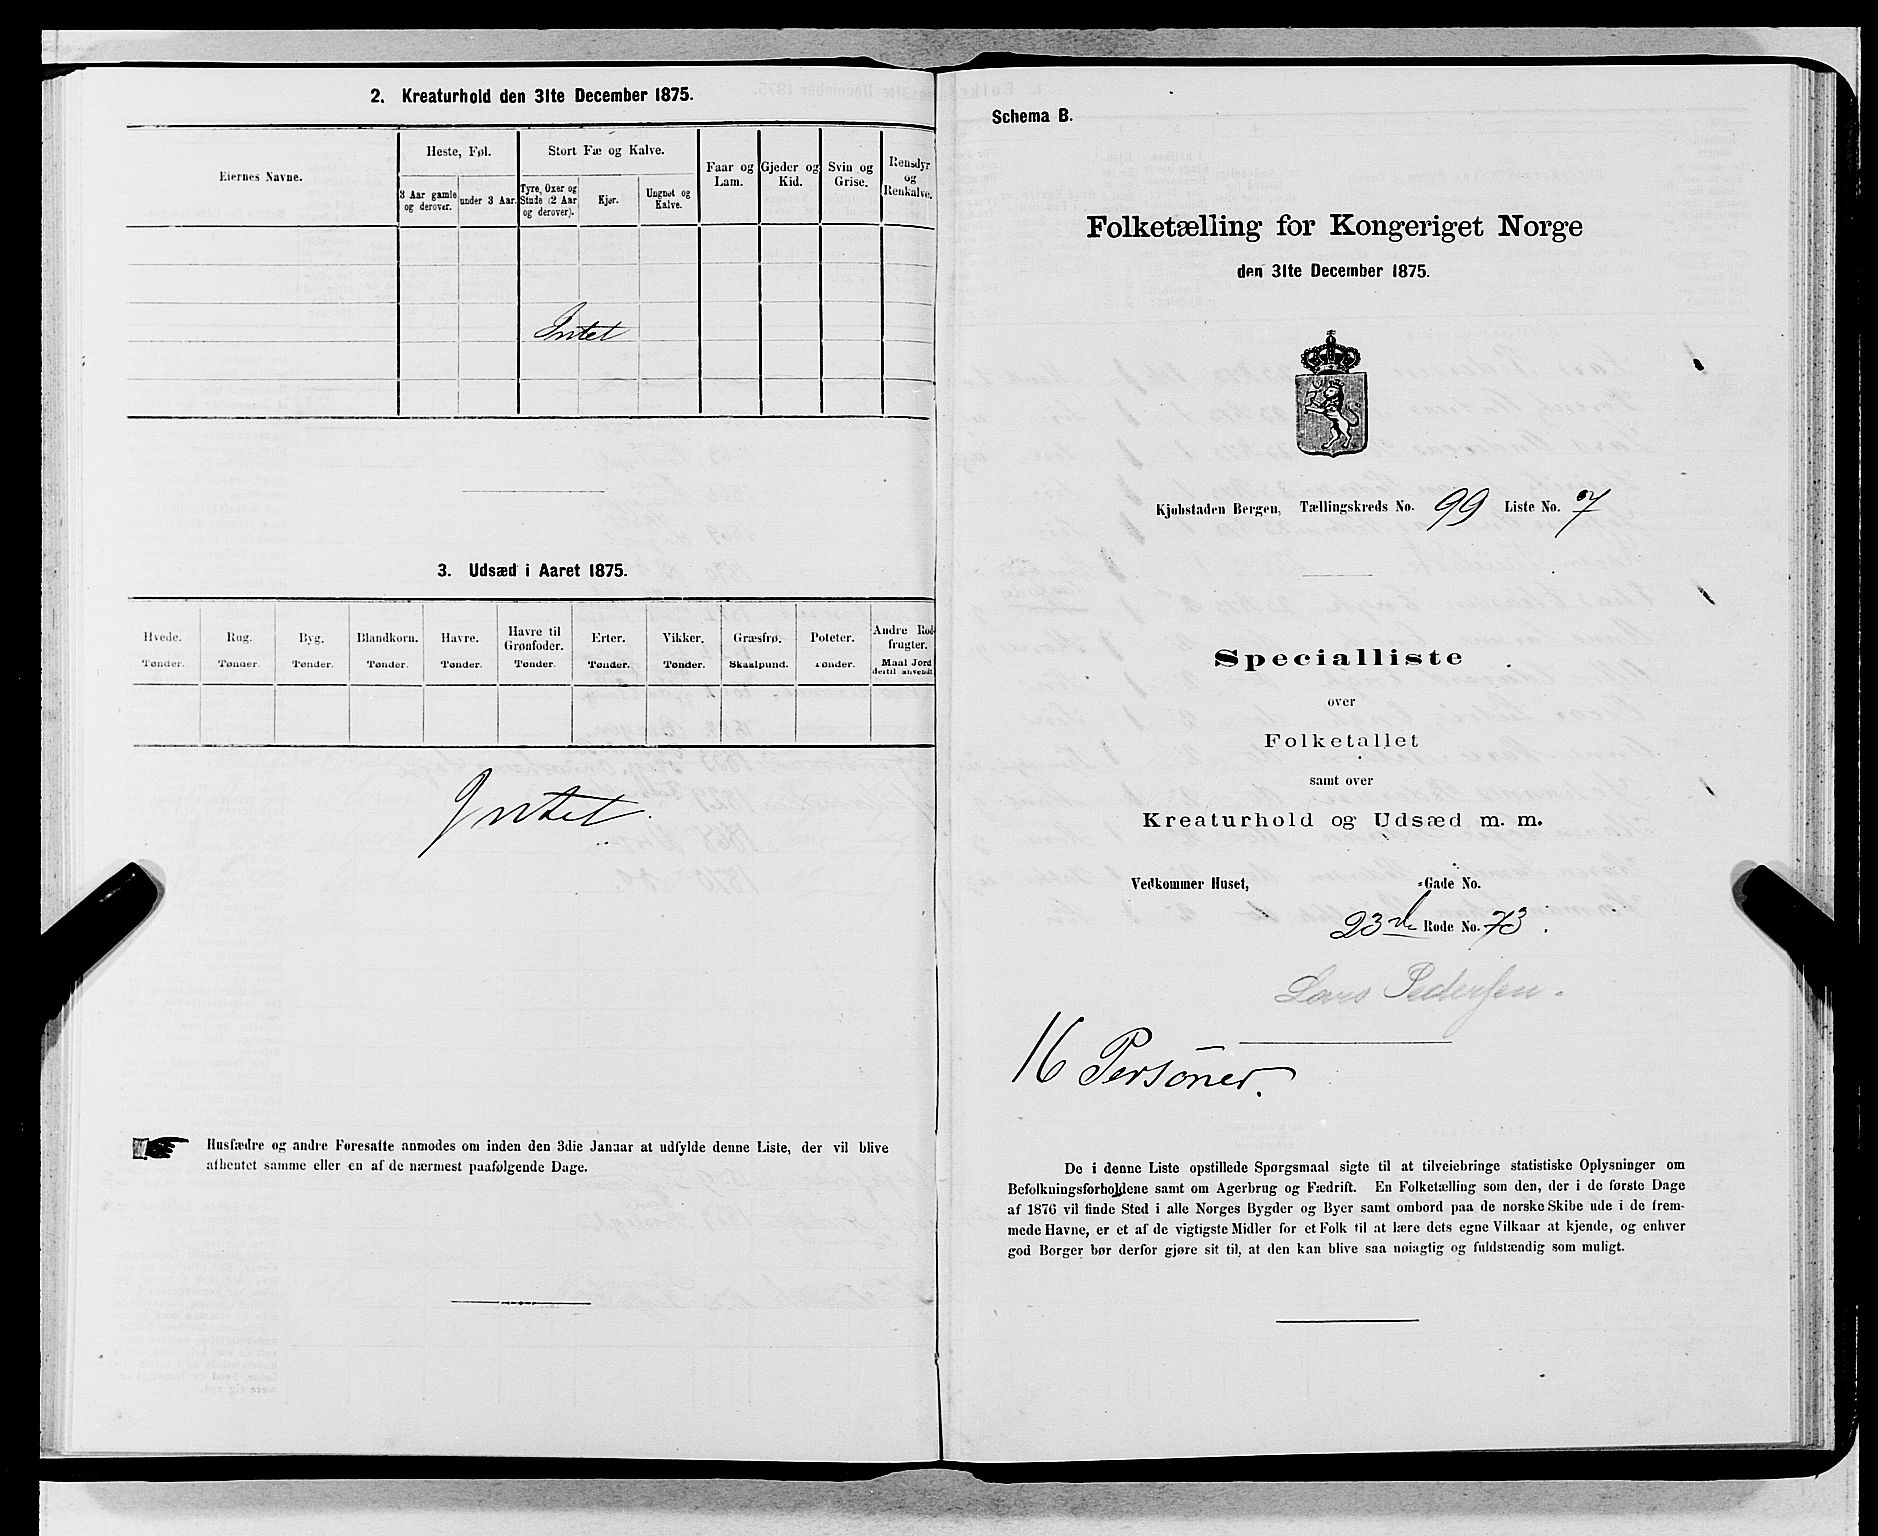 2. Kreaturhold den 31te December 1875.
Eiernes Navne.
Heste, Føl.
Stort Fæ og Kalve.
3 Aar gamle og derover.
under 3 Aar.
Tyre, Oxer og Stude (2 Aar og derover).
Kjør.
Ungnøt og Kalve.
Faar og Lam.
Gjeder og Kid.
Svin og Grise.
Rensdyr og Renkalve.
Intet
3. Udsæd i Aaret 1875.
Hvede. Rug. Byg. Blandkorn. Havre. Havre til Grønfoder. Erter. Vikker. Græsfrø. Poteter. Andre Rodfrugter.
Tønder. Tønder. Tønder. Tønder. Tønder. Tønder. Tønder. Tønder. Skaalpund. Tønder. Maal Jord dertil anvendt.
Intet.
Husfædre og andre Foresatte anmodes om inden den 3die Januar at udfylde denne Liste, der vil blive
afhentet samme eller en af de nærmest paafølgende Dage.
Schema B.
Folketælling for Kongeriget Norge
den 31te December 1875.
Kjøbstaden Bergen, Tællingskreds No. 99 Liste No. 7
Specialliste
over
Folketallet
samt over
Kreaturhold og Udsæd m. m.
Vedkommer Huset, -Gade No.
23de Rode No. 73.
Lars Pedersen.
16 Personer.
De i denne Liste opstillede Spørgsmaal sigte til at tilveiebringe statistiske Oplysninger om
Befolkningsforholdene samt om Agerbrug og Fædrift. En Folketælling som den, der i de første Dage
af 1876 vil finde Sted i alle Norges Bygder og Byer samt ombord paa de norske Skibe ude i de frem-
mede Havne, er et af de vigtigste Midler for et Folk til at lære dets egne Vilkaar at kjende, og enhver
god Borger bør derfor gjøre sit til, at den kan blive saa nøiagtig og fuldstændig som muligt.